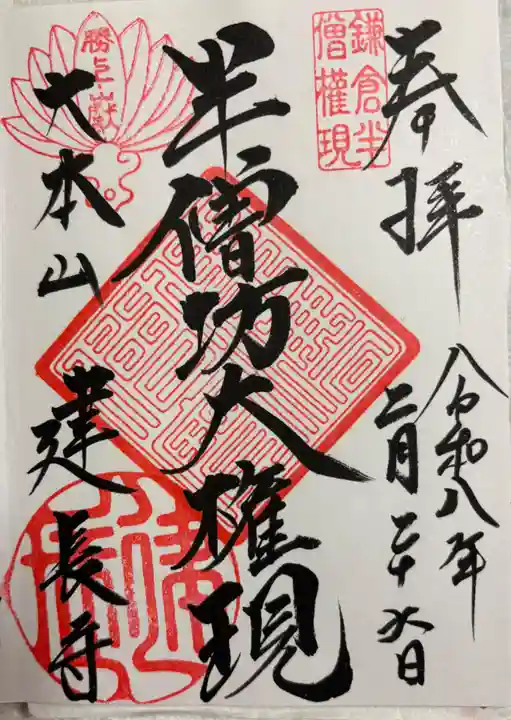 奉拝
鎌倉半
僧権現
令和八年
二月二十六日
半僧坊大権現
勝上嶽
大本山 建長寺